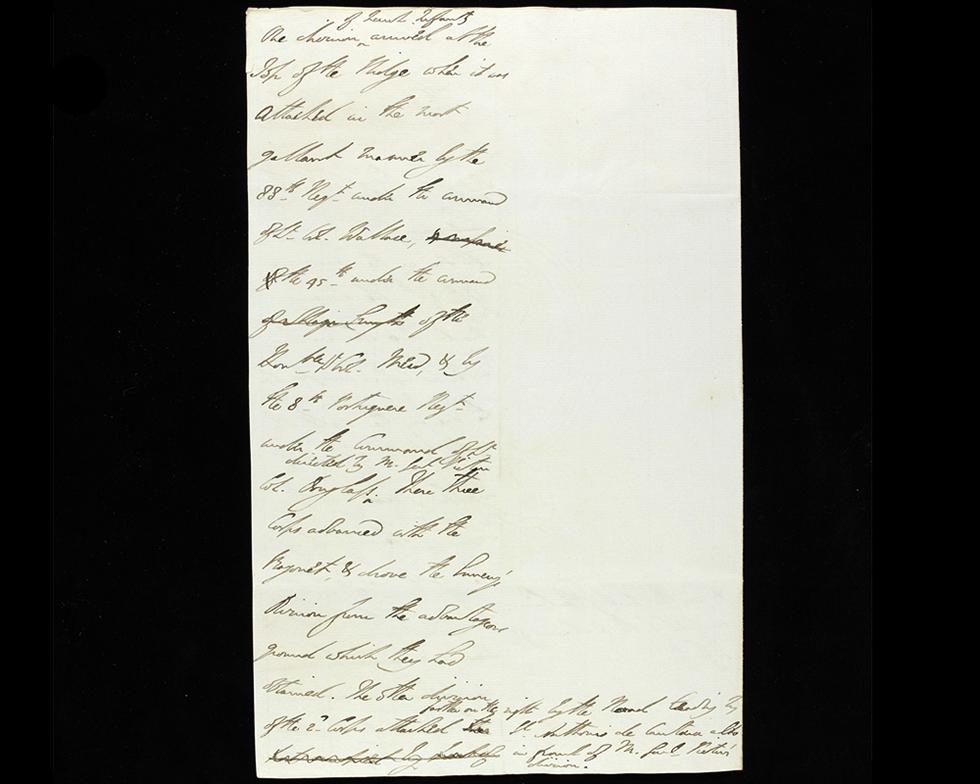 of French Infantry
One division arrived at the
Top of the Ridge when it was
attacked in the most
gallant manner by the
88th Regt. under the command
of Lt. Col. Wallace,
the 45th under the command
of the
Honble Lt. Col. Mead, & by
the 8th Portuguese Regt
under the Command of Lt
directed by M. Genl. Picton
Col. Douglass. These three
Corps advanced with the
Bayonet, & drove the Enemy's
Division from the advantageous
ground which they had
obtained. The other division
farther on the right by the Road leading by
of the 2d Corps attacked St. Antonio de Cantara also
in front of M. Genl. Picton's
division.